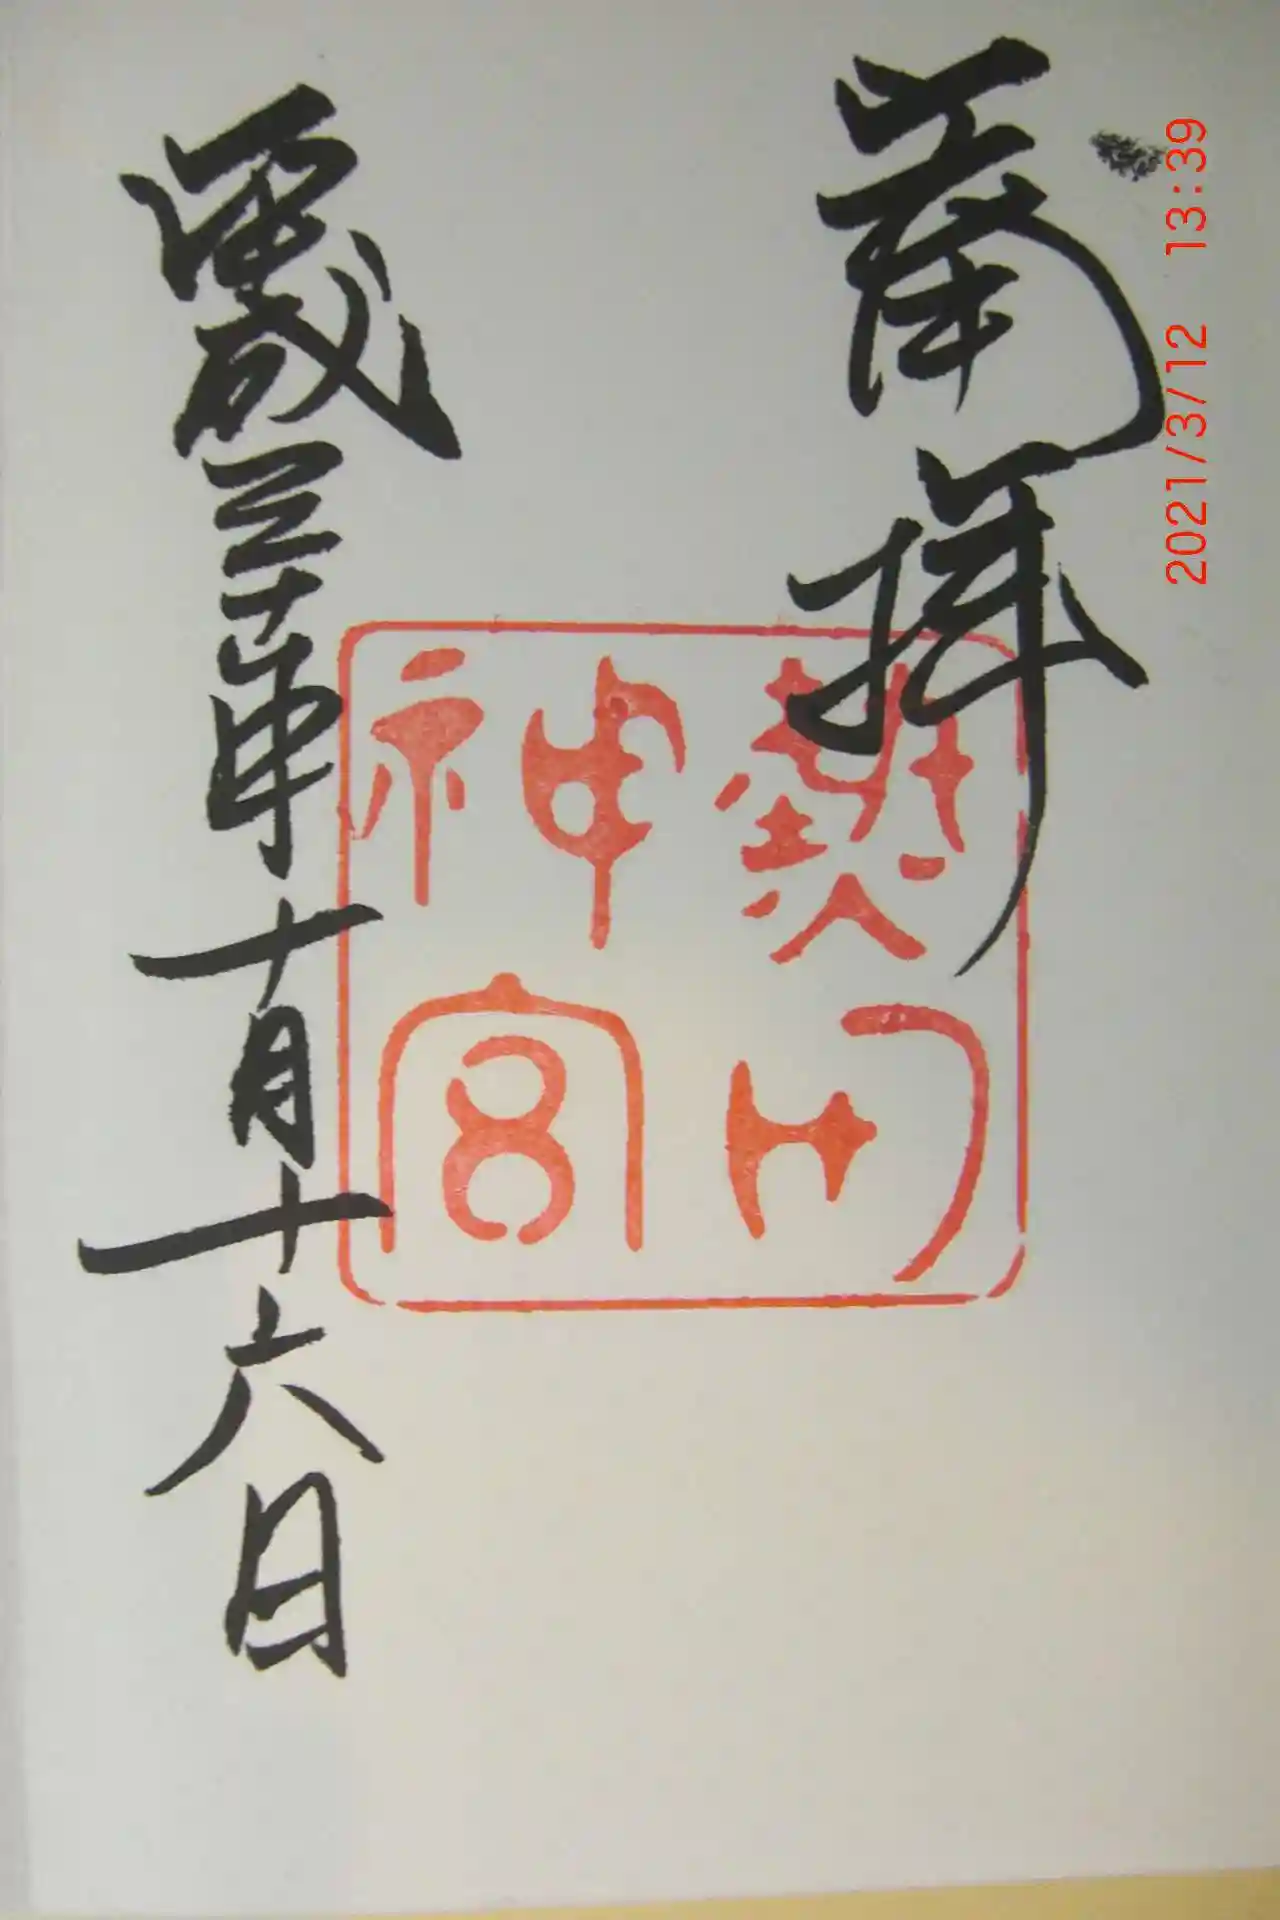 2021/3/12 13:39
奉拝
熱田
神宮
平成三十年十月十六日